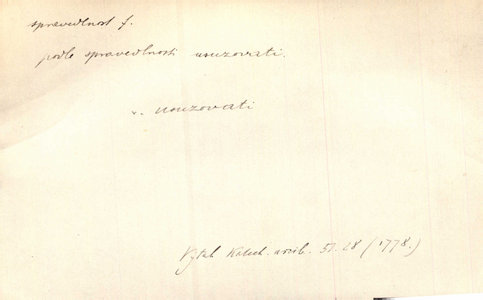 spravedlnost f.
podle spravedlnosti usuzovati.
v. usuzovati
Výtah Katech. 28 (1778.)